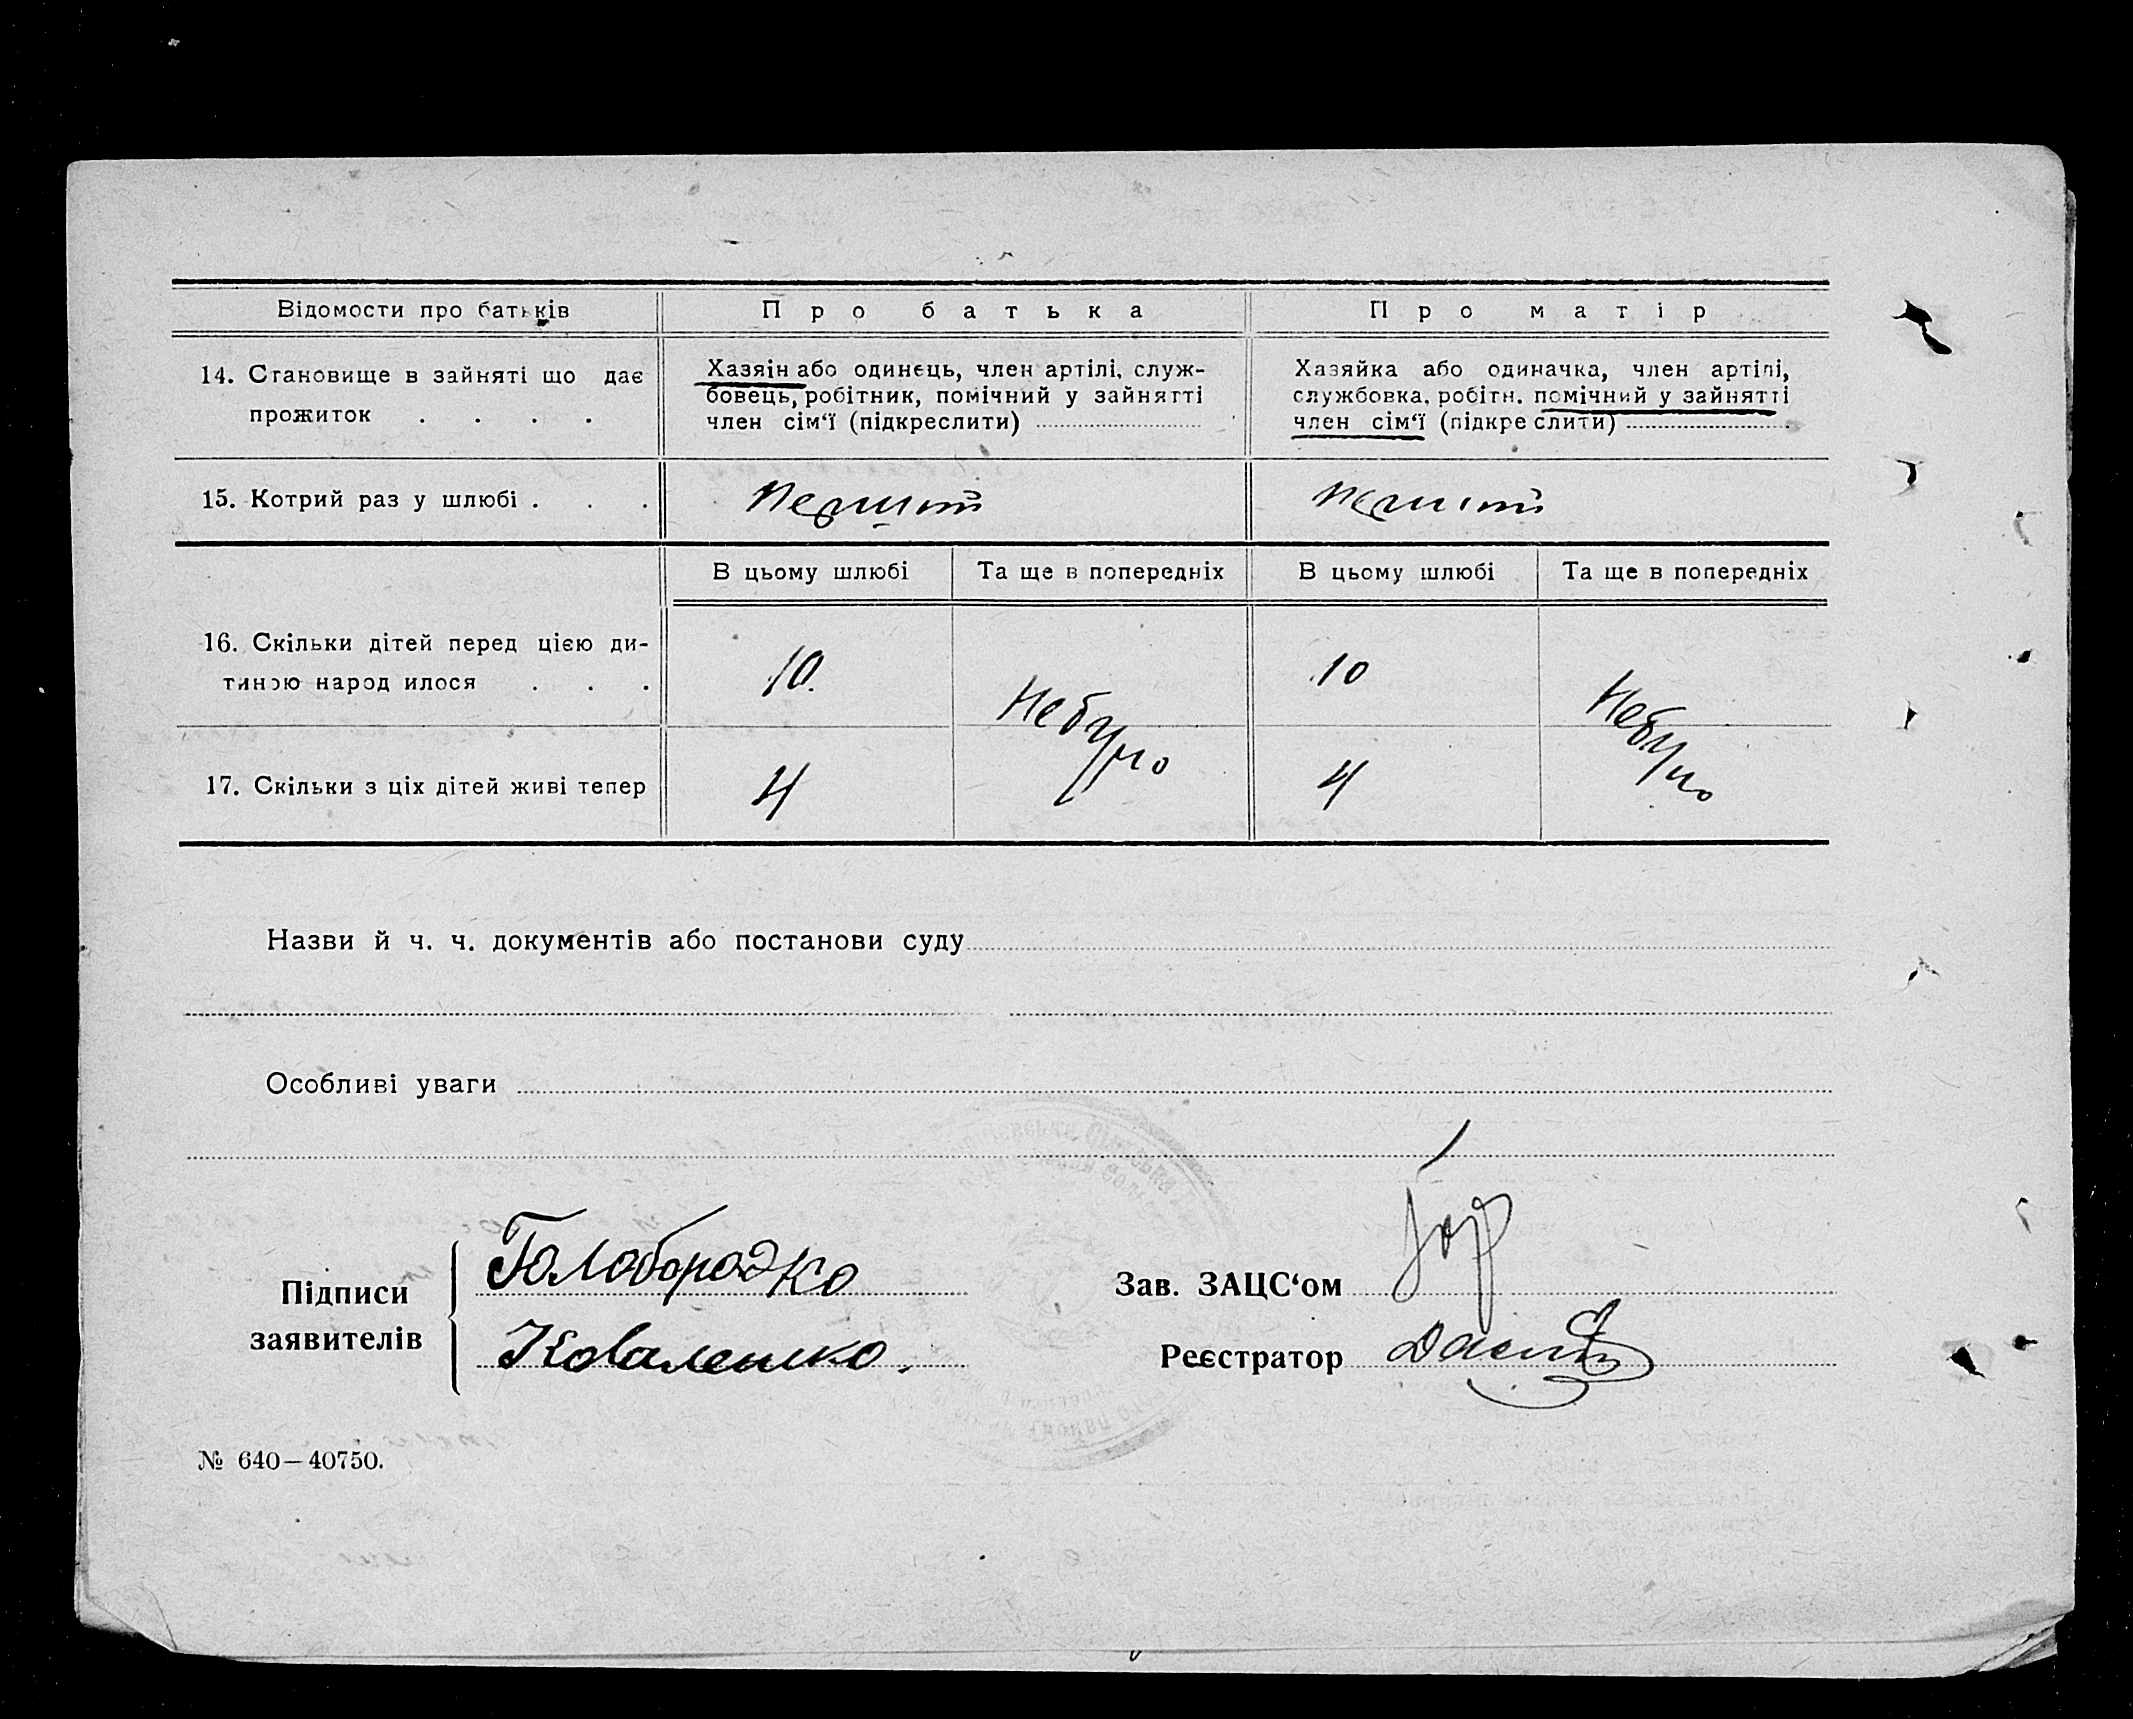 Відомости про батьків Про батька Про матір
14. Становище в зайняті що дає
прожиток . . . .
Хазяін або одинець, член артілі, служ-
бовець, робітник, помічний у зайнятті
член сім‘ї (підкреслити)
Хазяйка або одиначка, член артілі,
службовка, робітн. помічний у зайнятті
член сім‘ї (підкреслити)
15. Котрий раз у шлюбі . . . перший перший
В цьому шлюбі Та ще в попередніх В цьому шлюбі Та ще в попередніх
16. Скільки дітей перед цією ди-
тиною народилося . . .
10. 10
Небуло Небуло
17. Скільки з ціх дітей живі тепер 4 4
Назви й ч. ч. документів або постанови суду
Особливі уваги
Підписи
заявителів
Голобородко
Коваленко.
Зав. ЗАЦС‘ом
Реєстратор
№ 640—40750.